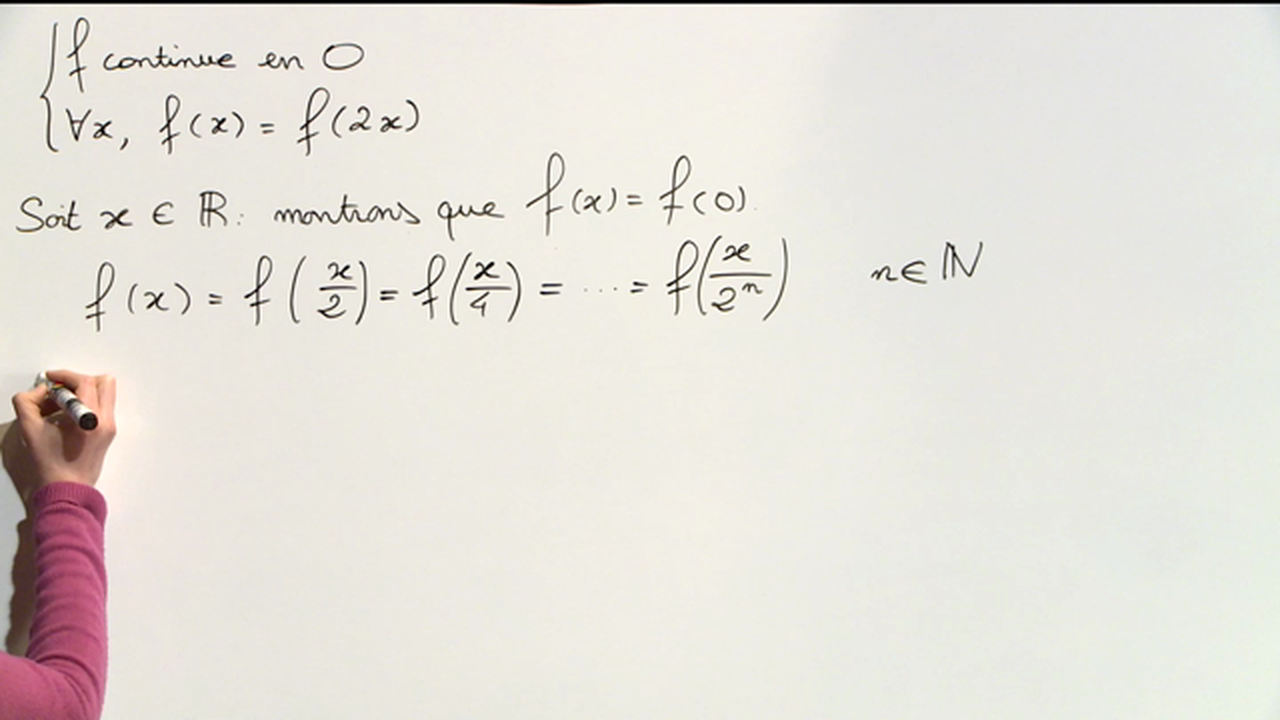 f continue en 0
∀x, f(x) = f(2x)
Soit x ∈ ℝ: montrons que f(x) = f(0).
f(x) = f(x/2) = f(x/4) = ... = f(x/2ⁿ) n ∈ ℕ